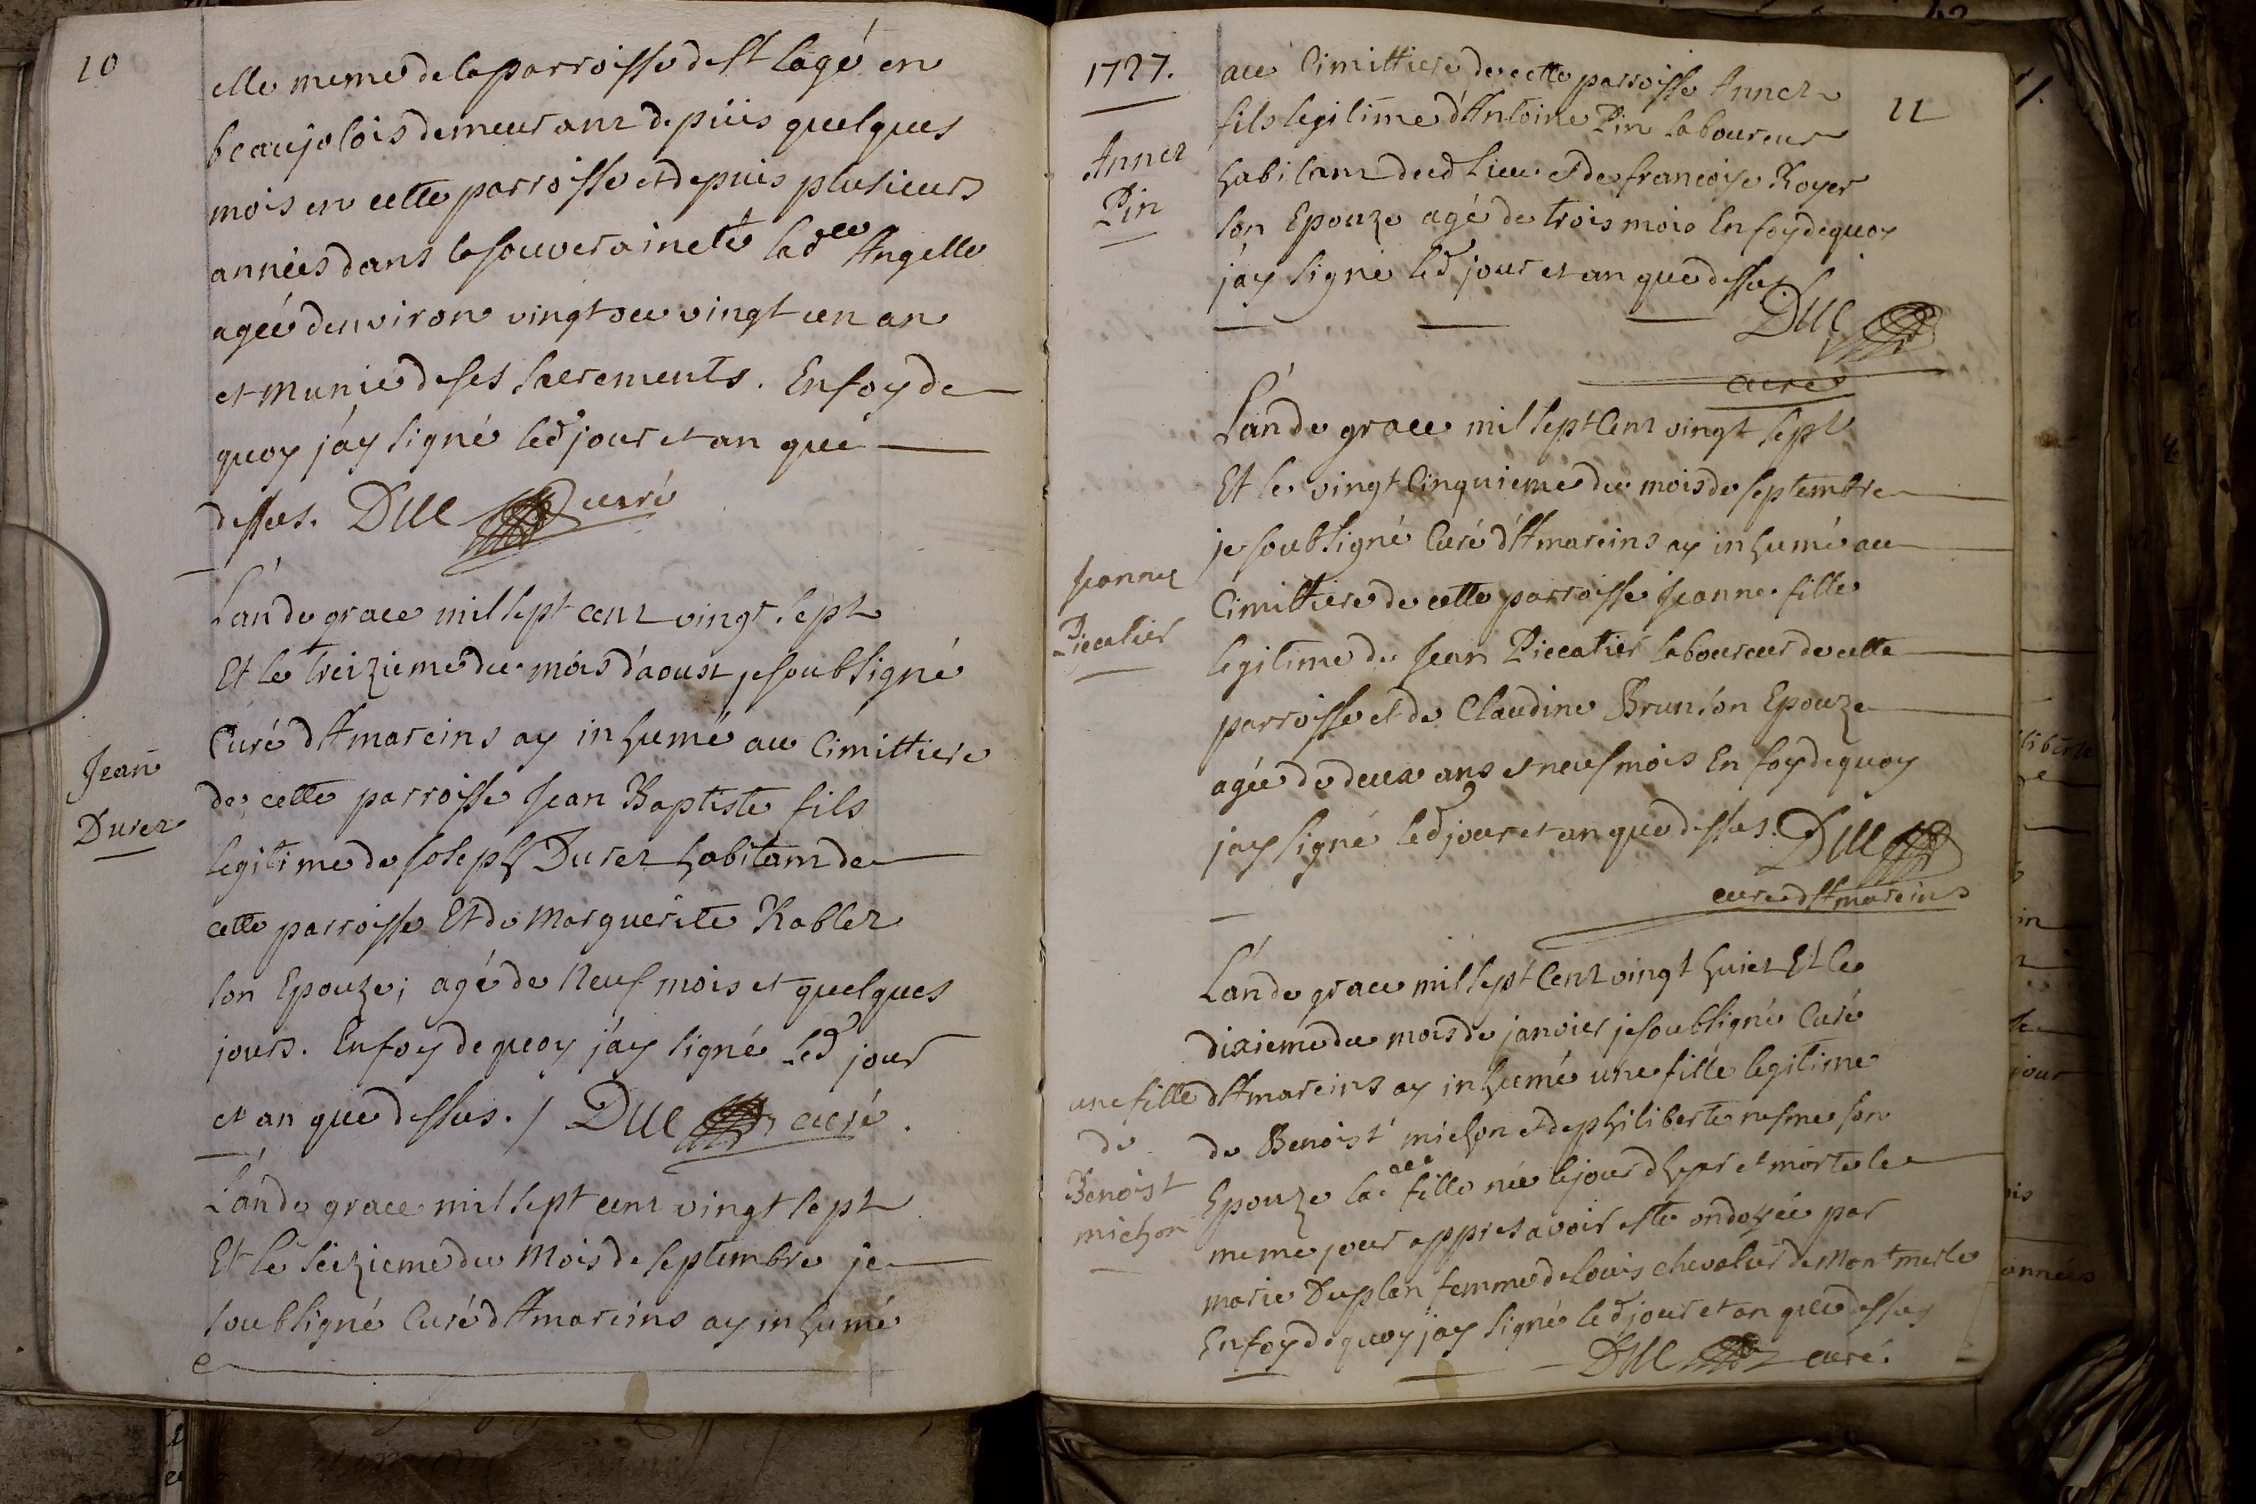 10
elle meme de la parroisse de St lagé en
beaujolois demeurant depuis quelques
mois en cette parroisse et depuis plusieurs
années dans la souveraineté lad. Angelle
agée denviron vingt ou vingt un an
et munie de ses sacrements. En foy de
quoy j'ay signé led jour et an que
dessus. DUC curé
L'an de grace mil sept cent vingt sept
Et le treizieme du mois d'aoust je soubsigné
Curé d'Amareins ay inhumé au Cimittiere
Jean
Duret
de cette parroisse Jean Baptiste fils
legitime de Joseph Duret habitant de
cette parroisse Et de Marguerite Rablet
son Epouze; agé de neuf mois et quelques
jours. En foy de quoy j'ay signé led jour
et an que dessus. / DUC curé.
L'an de grace mil sept cent vingt sept
Et le seizieme du Mois de septembre je
soubsigné Curé d'Amareins ay inhumé
1727.
11
Annet
Pin
au Cimittiere de cette parroisse Annet
fils legitime d'Antoine Pin laboureur
habitant dud Lieu et de francoise Royer
son Epouze agé de trois mois En foy de quoy
j'ay signé led jour et an que dessus.
DUC
curé
L'an de grace mil sept Cent vingt sept
Et le vingt Cinquieme du mois de septembre
je soubsigné Curé d'Amareins ay inhumé au
Jeanne
Piccatier
Cimittiere de cette parroisse Jeanne fille
legitime de Jean Piccatier laboureur de cette
parroisse et de Claudine Brun son Epouze
agée de deux ans et neuf mois En foy de quoy
j'ay signé led jour et an que dessus. DUC
curé d'Amareins
L'an de grace mil sept Cent vingt huict Et le
dixieme du mois de janvier je soubsigné Curé
une fille
de
Benoist
michon
d'Amareins ay inhumé une fille legitime
de Benoist michon et de philiberte son
Epouze lad. fille née le jour d'hyer et morte le
meme jour appres avoir esté ondoyée par
marie Duplan femme de Louis chevalier de Montmerle
En foy de quoy j'ay signé led jour et an que dessus
DUC curé.